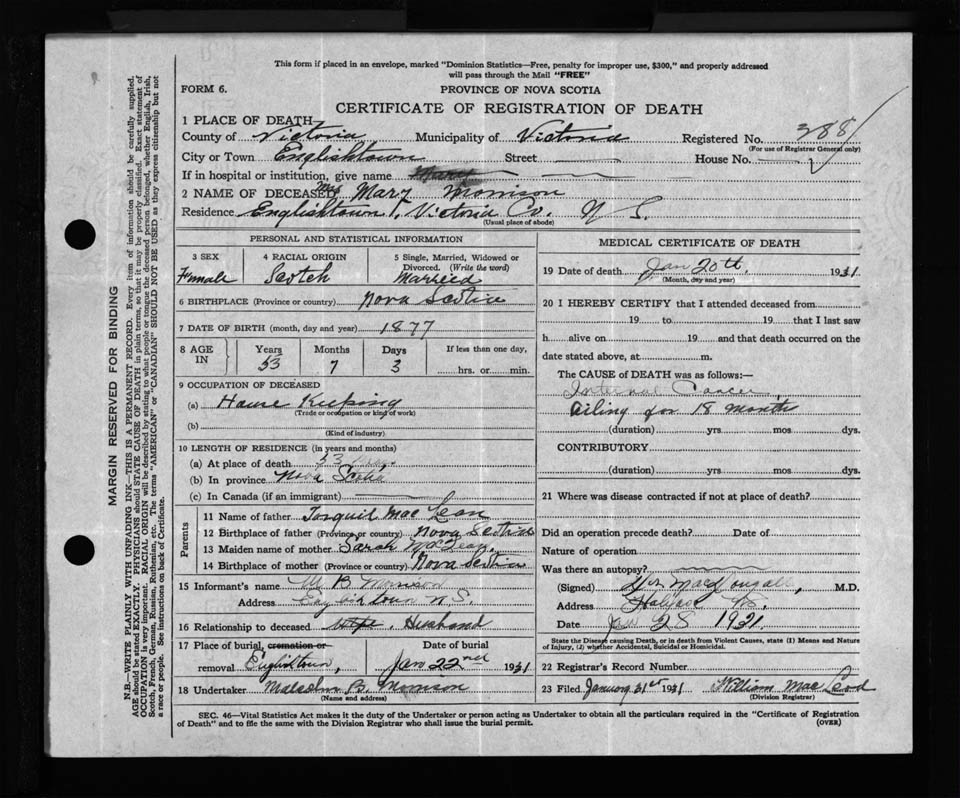 This form if placed in an envelope, marked "Dominion Statistics—Free, penalty for improper use, $300," and properly addressed
will pass through the Mail "FREE"
FORM 6.
PROVINCE OF NOVA SCOTIA
CERTIFICATE OF REGISTRATION OF DEATH
1 PLACE OF DEATH
County of Victoria Municipality of Victoria Registered No. 288
(For use of Registrar General only)
City or Town Englishtown Street House No.
If in hospital or institution, give name
2 NAME OF DECEASED Mrs Mary Morrison
Residence Englishtown, Victoria Co. N S.
(Usual place of abode)
PERSONAL AND STATISTICAL INFORMATION
3 SEX 4 RACIAL ORIGIN 5 Single, Married, Widowed or
Divorced. (Write the word)
Female Scotch Married
6 BIRTHPLACE (Province or country) Nova Scotia
7 DATE OF BIRTH (month, day and year) 1877
8 AGE IN Years Months Days If less than one day,
53 7 3 hrs. or min.
9 OCCUPATION OF DECEASED
(a) House Keeping
(Trade or occupation or kind of work)
(b)
(Kind of industry)
10 LENGTH OF RESIDENCE (in years and months)
(a) At place of death 53
(b) In province Nova Scotia
(c) In Canada (if an immigrant)
Parents
11 Name of father Torquil Mac Lean
12 Birthplace of father (Province or country) Nova Scotia
13 Maiden name of mother Sarah
14 Birthplace of mother (Province or country) Nova Scotia
15 Informant's name M B. Morrison
Address Englishtown N S.
16 Relationship to deceased wife. Husband
17 Place of burial, cremation or Date of burial
removal Englishtown, Jan 22nd 1931
18 Undertaker Malcolm B. Morrison
(Name and address)
MEDICAL CERTIFICATE OF DEATH
19 Date of death Jan 20th. 1931
(Month, day and year)
20 I HEREBY CERTIFY that I attended deceased from
19 to 19 that I last saw
h alive on 19 and that death occurred on the
date stated above, at m.
The CAUSE OF DEATH was as follows:—
Internal Cancer
Ailing for 18 month
(duration) yrs mos dys.
CONTRIBUTORY
(duration) yrs. mos. dys.
21 Where was disease contracted if not at place of death?
Did an operation precede death? Date of
Nature of operation
Was there an autopsy?
(Signed) MacDougall, M.D.
Address
Date Jan 28 1931
State the Disease causing Death, or in death from Violent Causes, state (1) Means and Nature
of Injury, (2) whether Accidental, Suicidal or Homicidal.
22 Registrar's Record Number
23 Filed January 31st 1931 William Mac Leod
(Division Registrar)
SEC. 46—Vital Statistics Act makes it the duty of the Undertaker or person acting as Undertaker to obtain all the particulars required in the "Certificate of Registration
of Death" and to file the same with the Division Registrar who shall issue the burial permit. (OVER)
MARGIN RESERVED FOR BINDING
N.B.—WRITE PLAINLY WITH UNFADING INK—THIS IS A PERMANENT RECORD. Every item of information should be carefully supplied.
AGE should be stated EXACTLY. PHYSICIANS should STATE CAUSE OF DEATH in plain terms, so that it may be properly classified. Exact statement of
OCCUPATION is very important. RACIAL ORIGIN will be described by stating to what people or tongue the deceased person belonged, whether English, Irish,
Scotch, French, German, Russian, Ruthenian, etc. The terms "AMERICAN" or "CANADIAN" SHOULD NOT BE USED as they express citizenship but not
a race or people. See instructions on back of Certificate.